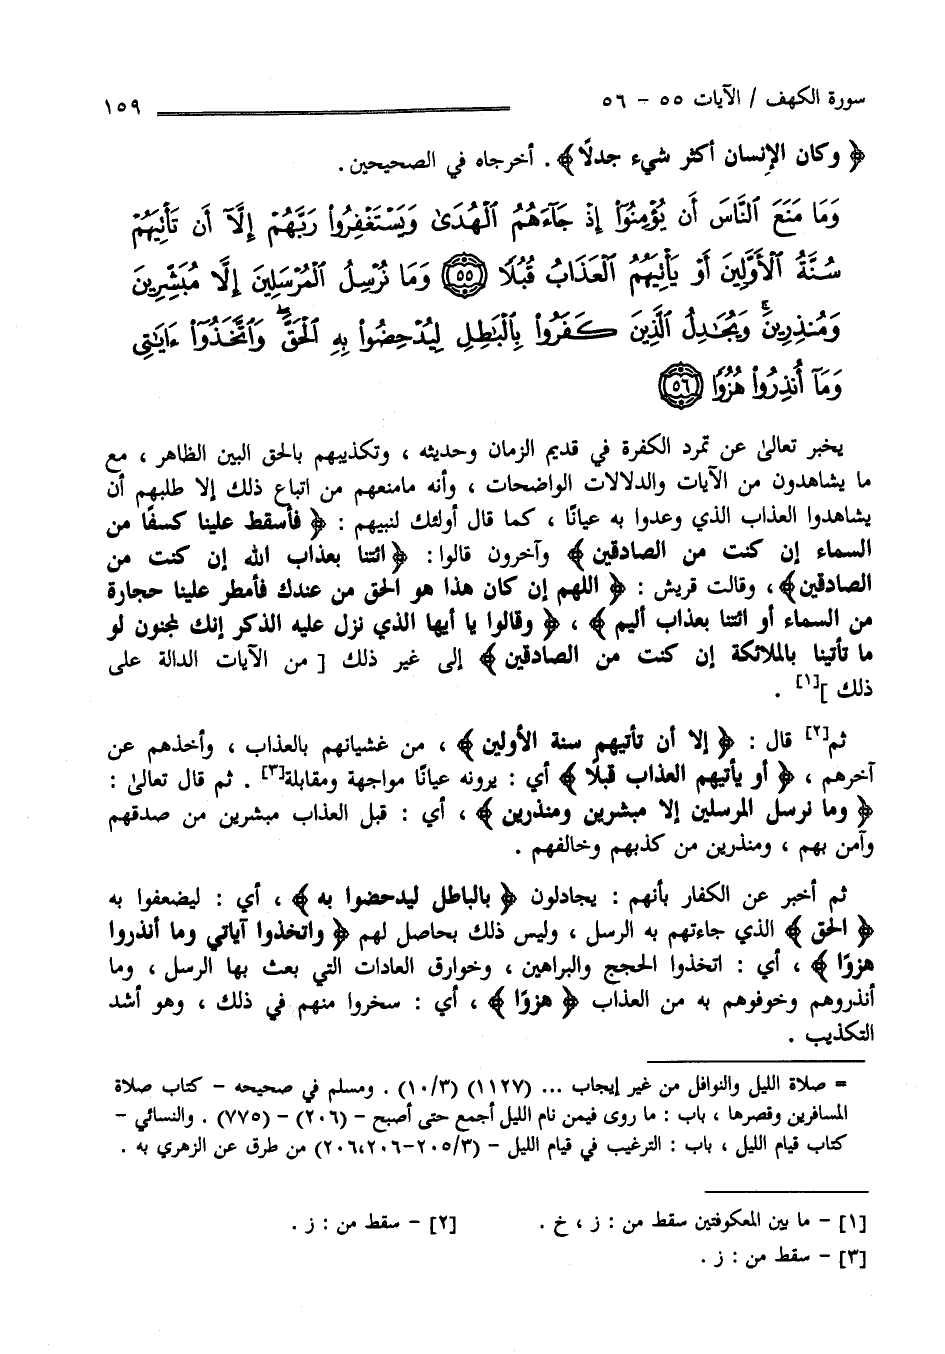 سورة الكهف / الآيات ٥٥ - ٥٦ ١٥٩
﴿ وكان الإنسان أكثر شيء جدلًا﴾ . أخرجاه في الصحيحين .
وَمَا مَنَعَ ٱلنَّاسَ أَن يُؤْمِنُوٓا۟ إِذْ جَآءَهُمُ ٱلْهُدَىٰ وَيَسْتَغْفِرُوا۟ رَبَّهُمْ إِلَّآ أَن تَأْتِيَهُمْ
سُنَّةُ ٱلْأَوَّلِينَ أَوْ يَأْتِيَهُمُ ٱلْعَذَابُ قُبُلًا ﴿٥٥﴾ وَمَا نُرْسِلُ ٱلْمُرْسَلِينَ إِلَّا مُبَشِّرِينَ
وَمُنذِرِينَ ۚ وَيُجَٰدِلُ ٱلَّذِينَ كَفَرُوا۟ بِٱلْبَٰطِلِ لِيُدْحِضُوا۟ بِهِ ٱلْحَقَّ ۖ وَٱتَّخَذُوٓا۟ ءَايَٰتِى
وَمَآ أُنذِرُوا۟ هُزُوًا ﴿٥٦﴾
يخبر تعالىٰ عن تمرد الكفرة في قديم الزمان وحديثه ، وتكذيبهم بالحق البين الظاهر ، مع
ما يشاهدون من الآيات والدلالات الواضحات ، وأنه مامنعهم من اتباع ذلك إلا طلبهم أن
يشاهدوا العذاب الذي وعدوا به عيانًا ، كما قال أولئك لنبيهم : ﴿ فأسقط علينا كسفًا من
السماء إن كنت من الصادقين﴾ وآخرون قالوا : ﴿ائتنا بعذاب الله إن كنت من
الصادقين﴾ ، وقالت قريش : ﴿ اللهم إن كان هذا هو الحق من عندك فأمطر علينا حجارة
من السماء أو ائتنا بعذاب أليم ﴾ ، ﴿ وقالوا يا أيها الذي نزل عليه الذكر إنك لمجنون لو
ما تأتينا بالملائكة إن كنت من الصادقين ﴾ إلى غير ذلك [ من الآيات الدالة على
ذلك ][١] .
ثم[٢] قال : ﴿ إلا أن تأتيهم سنة الأولين ﴾ ، من غشيانهم بالعذاب ، وأخذهم عن
آخرهم ، ﴿ أو يأتيهم العذاب قبلًا ﴾ أي : يرونه عيانًا مواجهة ومقابلة[٣] . ثم قال تعالىٰ :
﴿ وما نرسل المرسلين إلا مبشرين ومنذرين ﴾ ، أي : قبل العذاب مبشرين من صدقهم
وآمن بهم ، ومنذرين من كذبهم وخالفهم .
ثم أخبر عن الكفار بأنهم : يجادلون ﴿ بالباطل ليدحضوا به ﴾ ، أي : ليضعفوا به
﴿ الحق ﴾ الذي جاءتهم به الرسل ، وليس ذلك بحاصل لهم ﴿ واتخذوا آياتي وما أنذروا
هزوًا ﴾ ، أي : اتخذوا الحجج والبراهين ، وخوارق العادات التي بعث بها الرسل ، وما
أنذروهم وخوفوهم به من العذاب ﴿ هزوًا ﴾ ، أي : سخروا منهم في ذلك ، وهو أشد
التكذيب .
= صلاة الليل والنوافل من غير إيجاب ... (١١٢٧) (١٠/٣) . ومسلم في صحيحه - كتاب صلاة
المسافرين وقصرها ، باب : ما روى فيمن نام الليل أجمع حتى أصبح - (٢٠٦) - (٧٧٥) . والنسائي -
كتاب قيام الليل ، باب : الترغيب في قيام الليل - (٢٠٥/٣-٢٠٦،٢٠٦) من طرق عن الزهري به .
[١] - ما بين المعكوفتين سقط من : ز ، خ . [٢] - سقط من : ز .
[٣] - سقط من : ز .